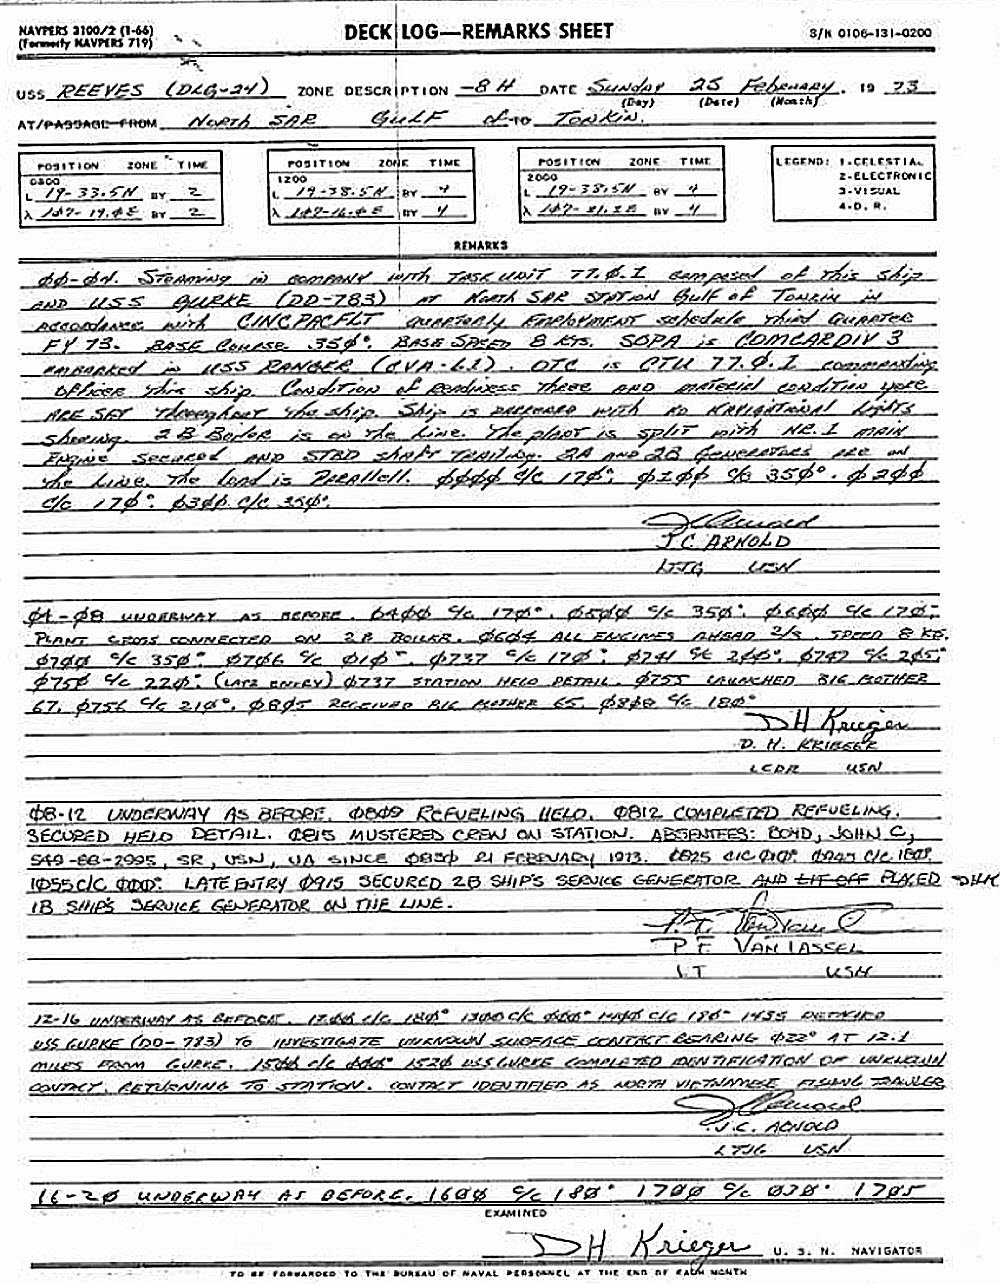 NAVPERS 3100/2 (1-66)
(Formerly NAVPERS 719)
DECK LOG—REMARKS SHEET
S/N 0106-131-0200
USS REEVES (DLG-24) ZONE DESCRIPTION -8 H DATE SUNDAY 25 FEBRUARY, 19 73
(Day) (Date) (Month)
AT/PASSAGE FROM NORTH SAR GULF of TO TONKIN.
POSITION ZONE TIME
0800
L 19-33.5N BY 2
λ BY 2
POSITION ZONE TIME
1200
L 19-38.5N BY 4
λ BY 4
POSITION ZONE TIME
2000
L 19-38.5N BY 4
λ BY 4
LEGEND: 1-CELESTIAL
2-ELECTRONIC
3-VISUAL
4-D. R.
REMARKS
ØØ-Ø4. STEAMING IN COMPANY WITH TASK UNIT 77.Ø.1 COMPOSED OF THIS SHIP
AND USS GURKE (DD-783) AT NORTH SAR STATION GULF OF TONKIN IN
ACCORDANCE WITH CINCPACFLT QUARTERLY EMPLOYMENT SCHEDULE THIRD QUARTER
FY 73. BASE COURSE 35Ø°. BASE SPEED 8 KTS. SOPA IS COMCARDIV 3
EMBARKED IN USS RANGER (CVA-61). OTC IS CTU 77.Ø.1 COMMANDING
OFFICER THIS SHIP. CONDITION OF READINESS THREE AND MATERIAL CONDITION YOKE
ARE SET THROUGHOUT THE SHIP. SHIP IS DARKENED WITH NO NAVIGATIONAL LIGHTS
SHOWING. 2B BOILER IS ON THE LINE. THE PLANT IS SPLIT WITH NR. 1 MAIN
ENGINE SECURED AND STBD SHAFT TRAILING. 2A AND 2B GENERATORS ARE ON
THE LINE. THE LOAD IS PARALLELL. ØØØØ C/C 17Ø°. Ø1ØØ C/C 35Ø°. Ø2ØØ
C/C 17Ø°. Ø3ØØ C/C 35Ø°.
J.C. ARNOLD
LTJG USN
Ø4-Ø8 UNDERWAY AS BEFORE. Ø4ØØ C/C 17Ø°. Ø5ØØ C/C 35Ø°. Ø6ØØ C/C 17Ø°.
PLANT CROSS CONNECTED ON 2B BOILER. Ø6Ø4 ALL ENGINES AHEAD 2/3. SPEED 8 KTS.
Ø7ØØ C/C 35Ø°. Ø7Ø6 C/C Ø1Ø°. Ø737 C/C 17Ø°. Ø741 C/C Ø747 C/C 2Ø5°.
Ø75Ø C/C 22Ø°. (LATE ENTRY) Ø737 STATION HELO DETAIL. Ø755 LAUNCHED BIG MOTHER
67. Ø756 C/C 21Ø°. Ø8Ø5 RECEIVED BIG MOTHER 65. C/C 18Ø°
DH Krieger
D. H. KRIEGER
LCDR USN
Ø8-12 UNDERWAY AS BEFORE. Ø8Ø9 REFUELING HELO. Ø812 COMPLETED REFUELING.
SECURED HELO DETAIL. Ø815 MUSTERED CREW ON STATION. ABSENTEES: BOYD, JOHN C,
549-88-2995, SR, USN, UA SINCE Ø83Ø 21 FEBRUARY 1973. Ø825 C/C C/C 18Ø°.
1Ø55 C/C ØØØ°. LATE ENTRY Ø915 SECURED 2B SHIP'S SERVICE GENERATOR AND PLACED DHK
1B SHIP'S SERVICE GENERATOR ON THE LINE.
P F VAN TASSEL
LT USN
12-16 UNDERWAY AS BEFORE. C/C 18Ø° 13ØØ C/C ØØØ° 14ØØ C/C 18Ø° 1435 DETACHED
USS GURKE (DD-783) TO INVESTIGATE UNKNOWN SURFACE CONTACT BEARING Ø22° AT 12.1
MILES FROM GURKE. 15ØØ C/C ØØØ° 152Ø USS GURKE COMPLETED IDENTIFICATION OF UNKNOWN
CONTACT, RETURNING TO STATION. CONTACT IDENTIFIED AS NORTH VIETNAMESE FISHING TRAWLER
J.C. ARNOLD
LTJG USN
16-2Ø UNDERWAY AS BEFORE. 16ØØ C/C 18Ø° 17ØØ C/C Ø3Ø° 17Ø5
EXAMINED
DH Krieger U. S. N. NAVIGATOR
TO BE FORWARDED TO THE BUREAU OF NAVAL PERSONNEL AT THE END OF EACH MONTH